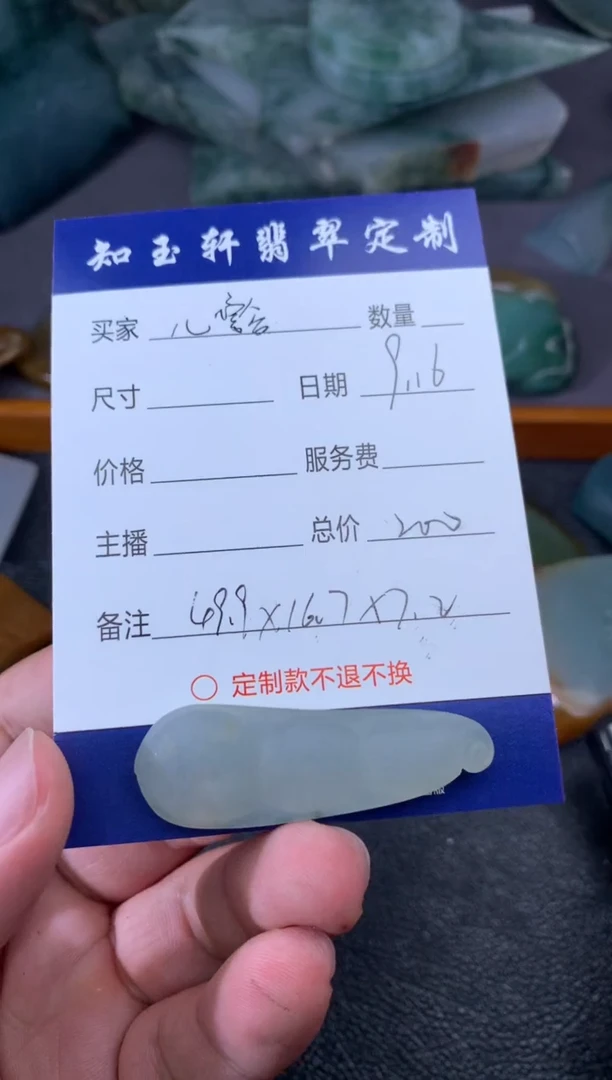 知玉轩翡翠定制
买家 数量
尺寸 日期 9.16
价格 服务费
主播 总价 200
备注 69.9×16.7×7.2
○ 定制款不退不换